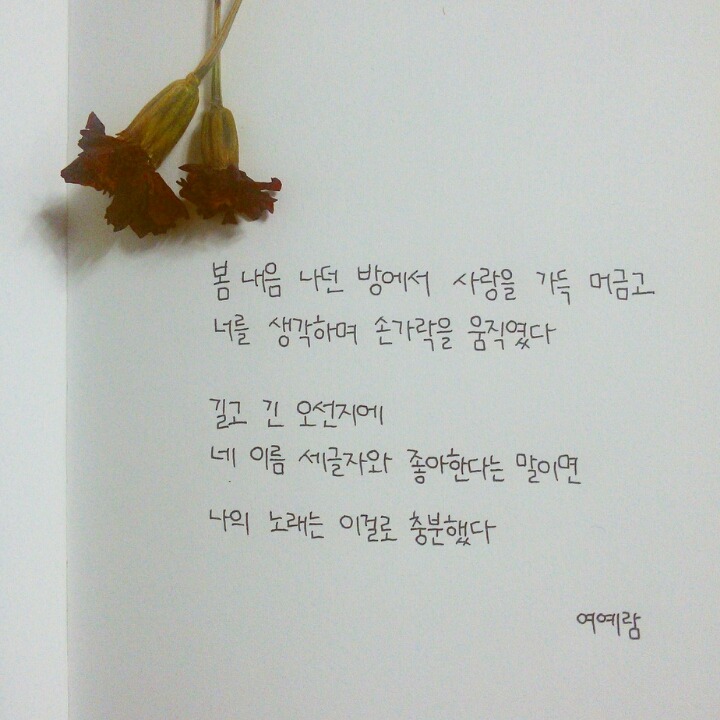 봄 내음 나던 방에서 사랑을 가득 머금고
너를 생각하며 손가락을 움직였다
길고 긴 오선지에
네 이름 세글자와 좋아한다는 말이면
나의 노래는 이걸로 충분했다
여예람